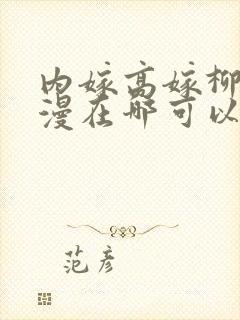 内嫁高嫁柳
漫在哪可以
范彦